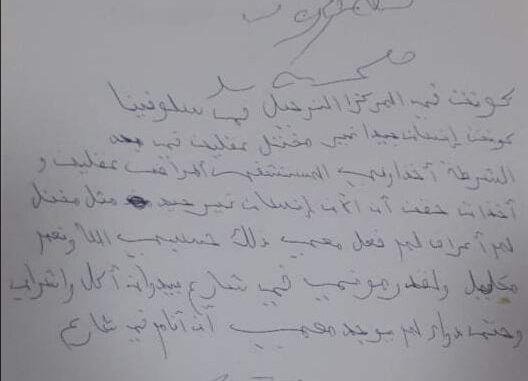 كونت في المركز الترحيل في سلوفينا
كونت إنسان جيدا غير مختل عقليت في يد
الشرطة أخداوني المستشفى أمراض عقليت و
أخدات حقت أن الآن إنسان غير جيد مثل مختل
لم أعراف لم فعل معي ذلك حسبي الله ونعم
الوكيل ولقد رموني في شارع بيدوان أكل واشراب
وحتى دواء لم يوجد معي أن أنام في شارع